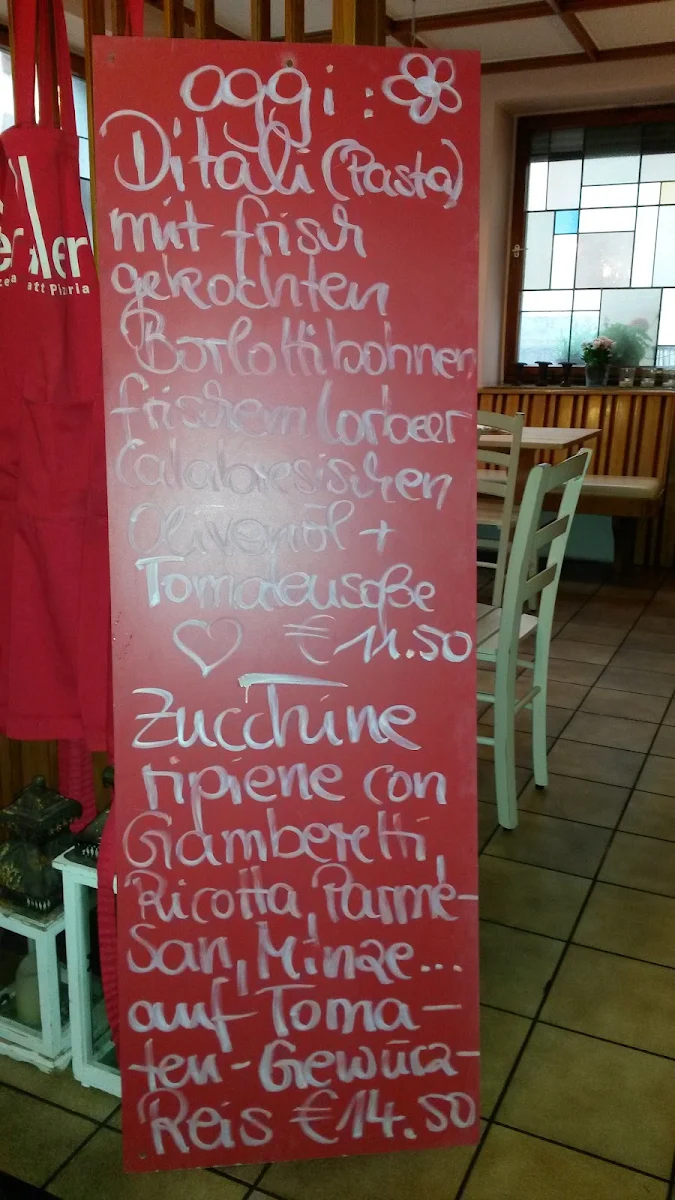 oggi:
Ditali (Pasta)
mit frisch
gekochten
Borlottibohnen
frischem Lorbeer
Calabresischen
Olivenöl +
Tomatensoße
€ 11.50
Zucchine
ripiene con
Gamberetti,
Ricotta, Parme-
san, Minze...
auf Toma-
ten-Gewürz-
Reis €14.50